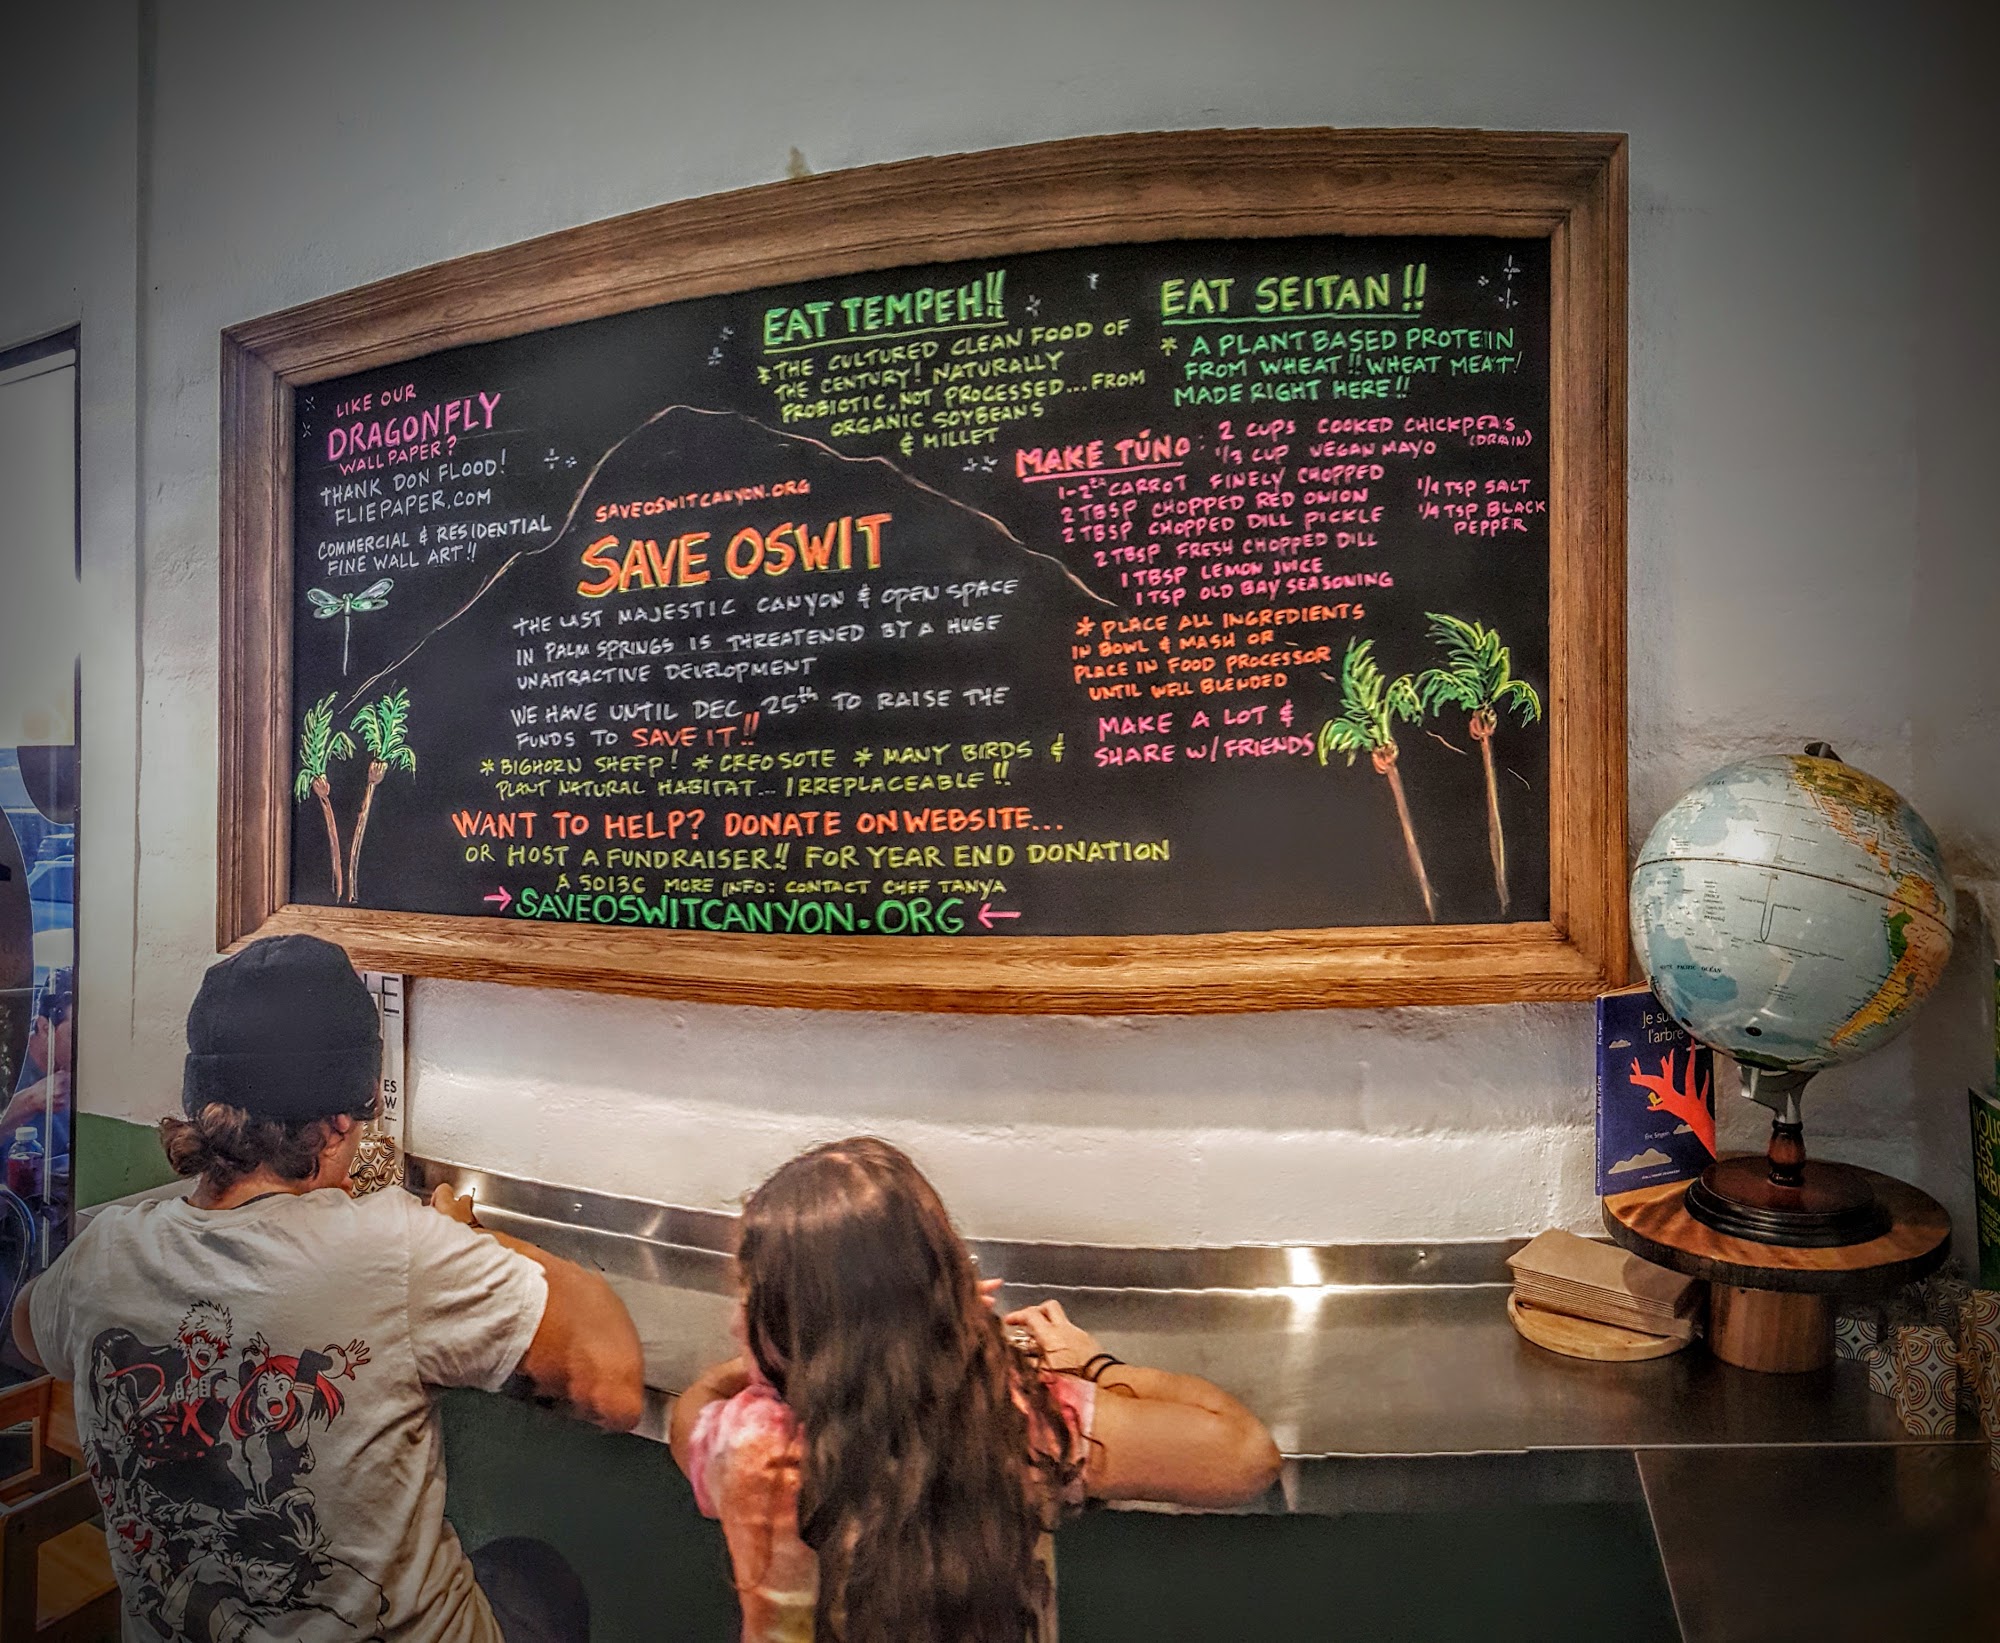 LIKE OUR
DRAGONFLY
WALLPAPER?
THANK DON FLOOD!
FLIEPAPER.COM
COMMERCIAL & RESIDENTIAL
FINE WALL ART!!
EAT TEMPEH!!
* THE CULTURED CLEAN FOOD OF
THE CENTURY! NATURALLY
PROBIOTIC, NOT PROCESSED... FROM
ORGANIC SOYBEANS
& MILLET
EAT SEITAN!!
* A PLANT BASED PROTEIIN
FROM WHEAT!! WHEAT MEAT!
MADE RIGHT HERE!!
SAVEOSWITCANYON.ORG
SAVE OSWIT
THE LAST MAJESTIC CANYON & OPEN SPACE
IN PALM SPRINGS IS THREATENED BY A HUGE
UNATTRACTIVE DEVELOPMENT
WE HAVE UNTIL DEC 25th TO RAISE THE
FUNDS TO SAVE IT!!
* BIGHORN SHEEP! * CREOSOTE * MANY BIRDS &
PLANT NATURAL HABITAT... IRREPLACEABLE!!
WANT TO HELP? DONATE ON WEBSITE...
OR HOST A FUNDRAISER!! FOR YEAR END DONATION
A 5013C MORE INFO: CONTACT CHEF TANYA
→ SAVEOSWITCANYON.ORG ←
MAKE TÚNO: 2 CUPS COOKED CHICKPEAS
(DRAIN)
1/3 CUP VEGAN MAYO
1-2 CARROT FINELY CHOPPED
2 TBSP CHOPPED RED ONION
2 TBSP CHOPPED DILL PICKLE
2 TBSP FRESH CHOPPED DILL
1 TBSP LEMON JUICE
1 TSP OLD BAY SEASONING
1/4 TSP SALT
1/4 TSP BLACK
PEPPER
* PLACE ALL INGREDIENTS
IN BOWL & MASH OR
PLACE IN FOOD PROCESSOR
UNTIL WELL BLENDED
MAKE A LOT &
SHARE W/ FRIENDS
Je
l'arbre
PACIFIC OCEAN